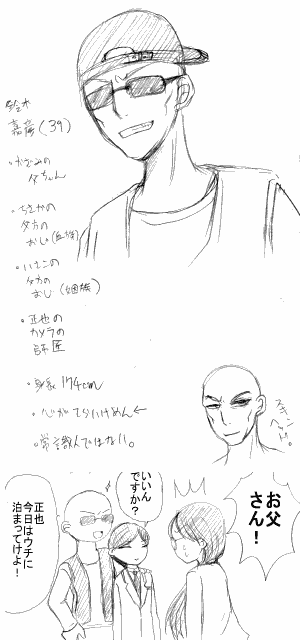 鈴木
嘉彦(39)
・かずみの
父ちゃん
・ちさかの
父方の
おじ(血族)
・いさこの
父方の
おじ(姻族)
・正也の
カメラの
師匠
・身長174cm
・心がてらいけめん←
・常識人ではない。
スキン
ヘッド。
お父
さん!
いいん
ですか?
正也
今日はウチに
泊まってけよ!